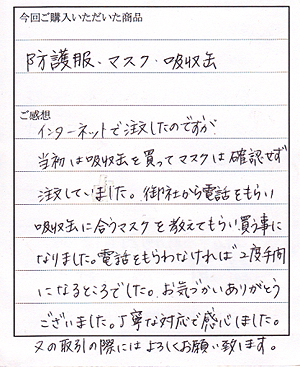 今回ご購入いただいた商品
防護服、マスク・吸収缶
ご感想
インターネットで注文したのですが
当初は吸収缶を買ってマスクは確認せず
注文していました。御社から電話をもらい
吸収缶に合うマスクを教えてもらい買う事に
なりました。電話をもらわなければ2度手間
になるところでした。お気づかいありがとう
ございました。丁寧な対応で感心しました。
又の取引の際にはよろしくお願い致します。